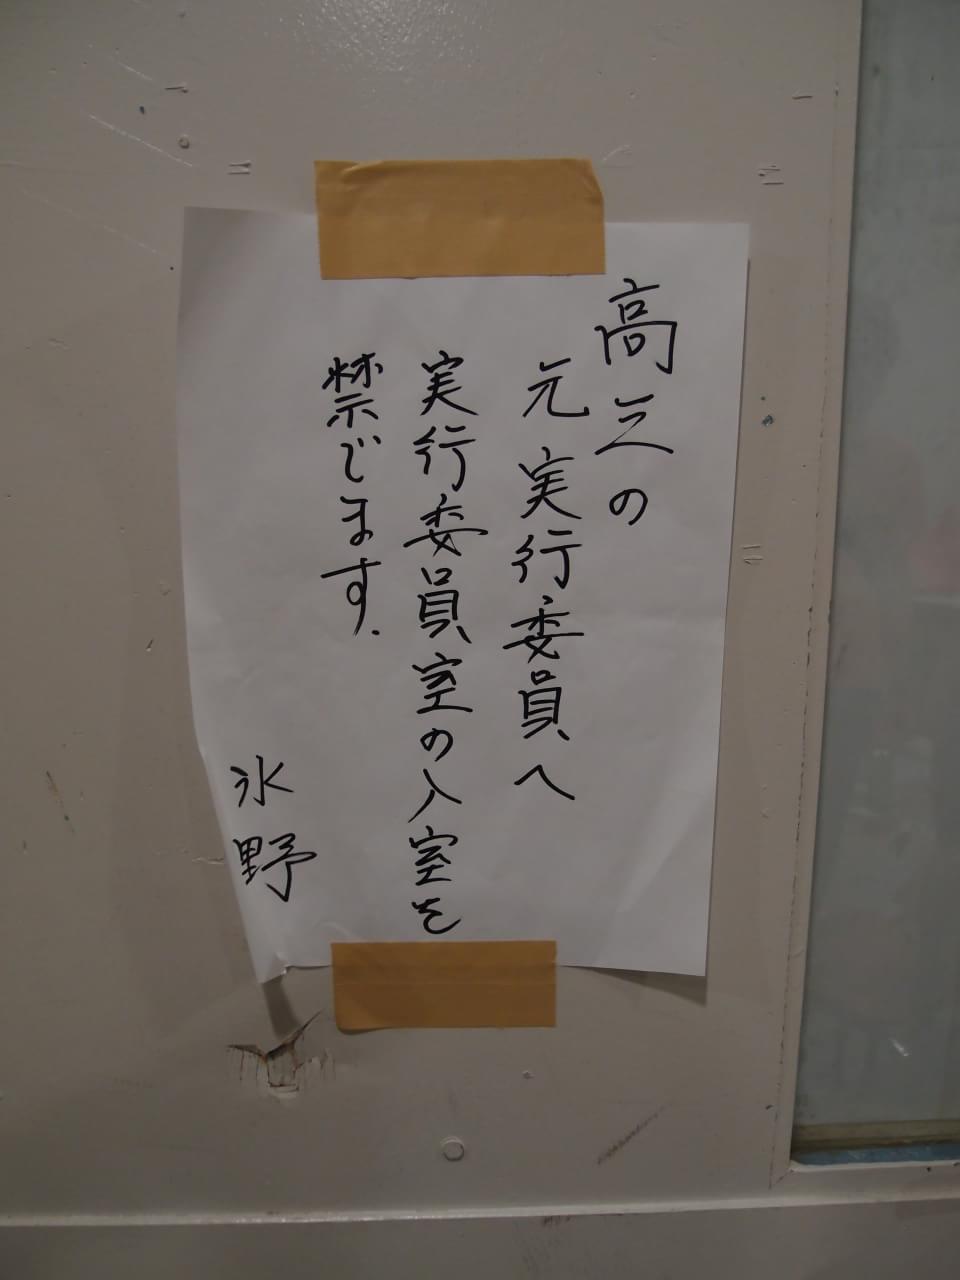 高三の
元実行委員へ
実行委員室の入室を
禁じます.
氷野